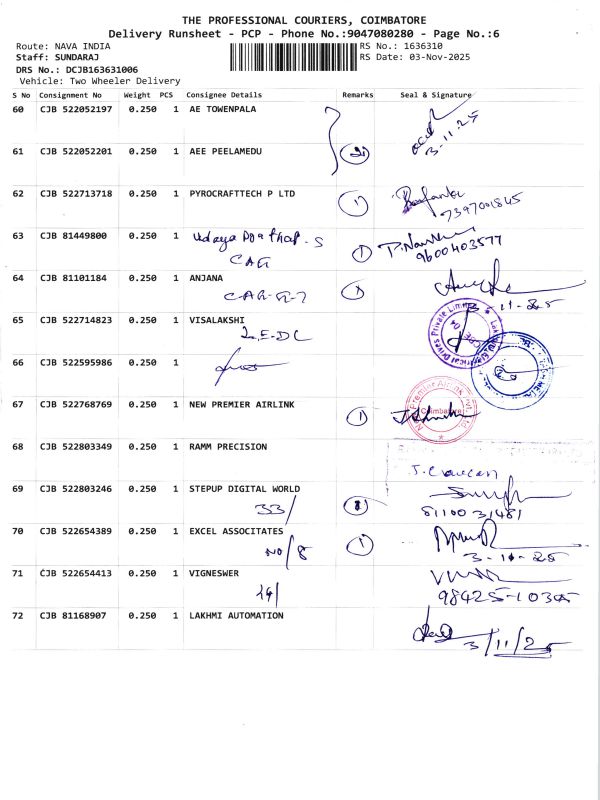 THE PROFESSIONAL COURIERS, COIMBATORE
Delivery Runsheet - PCP - Phone No.:9047080280 - Page No.:6
Route: NAVA INDIA RS No.: 1636310
Staff: SUNDARAJ RS Date: 03-Nov-2025
DRS No.: DCJB163631006
Vehicle: Two Wheeler Delivery
S No Consignment No Weight PCS Consignee Details Remarks Seal & Signature
60 CJB 522052197 0.250 1 AE TOWENPALA
3-11-25
61 CJB 522052201 0.250 1 AEE PEELAMEDU 2
62 CJB 522713718 0.250 1 PYROCRAFTTECH P LTD 1
7397001845
63 CJB 81449800 0.250 1 Udaya Prathap. S 1
CAG 9600403577
64 CJB 81101184 0.250 1 ANJANA 1
CAG-G-7 3-11-25
65 CJB 522714823 0.250 1 VISALAKSHI
66 CJB 522595986 0.250 1
67 CJB 522768769 0.250 1 NEW PREMIER AIRLINK 1
Coimbatore
68 CJB 522803349 0.250 1 RAMM PRECISION
69 CJB 522803246 0.250 1 STEPUP DIGITAL WORLD
33/
70 CJB 522654389 0.250 1 EXCEL ASSOCITATES 1
NO/8 3-11-25
71 CJB 522654413 0.250 1 VIGNESWER
72 CJB 81168907 0.250 1 LAKHMI AUTOMATION
3/11/25